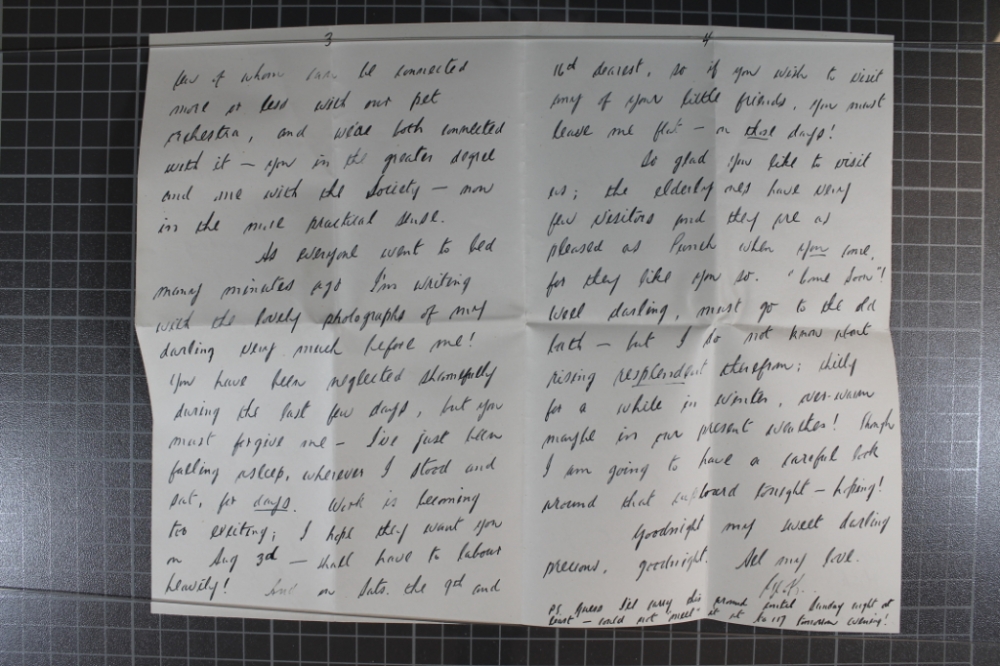 3
few of whom can be connected
more or less with our pet
orchestra, and we're both connected
with it — you in the greater degree
and me with the Society — now
in the more practical sense.
As everyone went to bed
many minutes ago I'm writing
with the lovely photographs of my
darling very much before me!
You have been neglected shamefully
during the last few days, but you
must forgive me — I've just been
falling asleep, wherever I stood and
sat, for days. Work is becoming
too exciting; I hope they want you
on Aug 3d — shall have to labour
heavily! And on Sats. the 9d and
4
16d dearest, so if you wish to visit
any of your little friends, you must
leave me flat — on those days!
So glad you like to visit
us; the elderly ones have very
few visitors and they are as
pleased as Punch when you come,
for they like you so. "Come Soon"!
Well darling, must go to the old
bath — but I do not know about
rising resplendent therefrom; chilly
for a while in winter, over-warm
maybe in our present weather! Though
I am going to have a careful look
around that cupboard tonight — hoping!
Goodnight my sweet darling
precious, goodnight. All my love.
PS. Guess I'll carry this around until Sunday night at
least — could not meet at tomorrow evening!